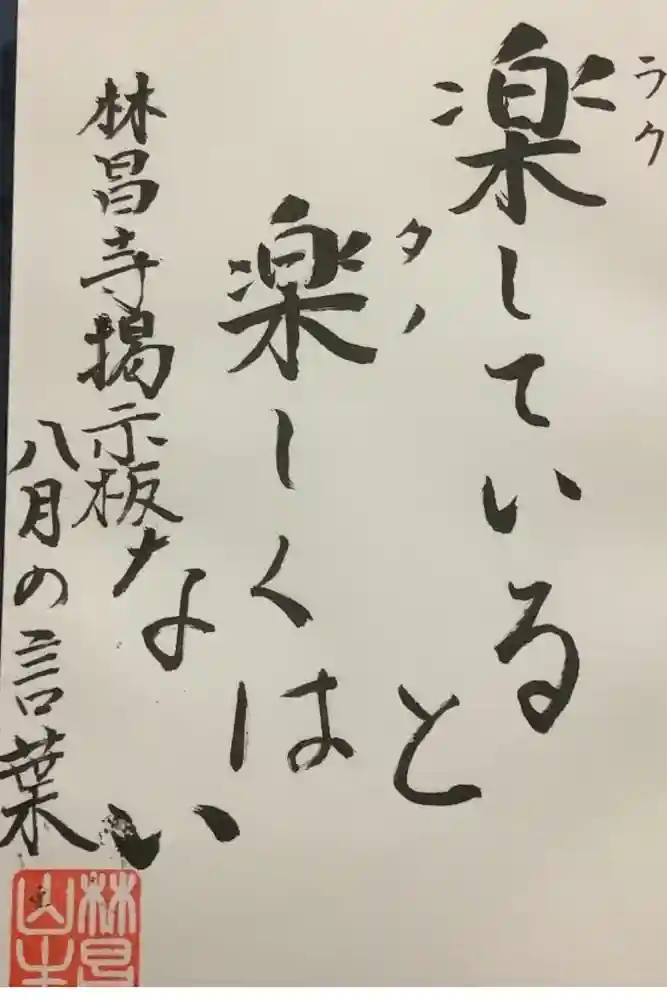 ラク
楽している
と
タノ
楽しくは
ない
林昌寺掲示板
八月の言葉
林昌
山主